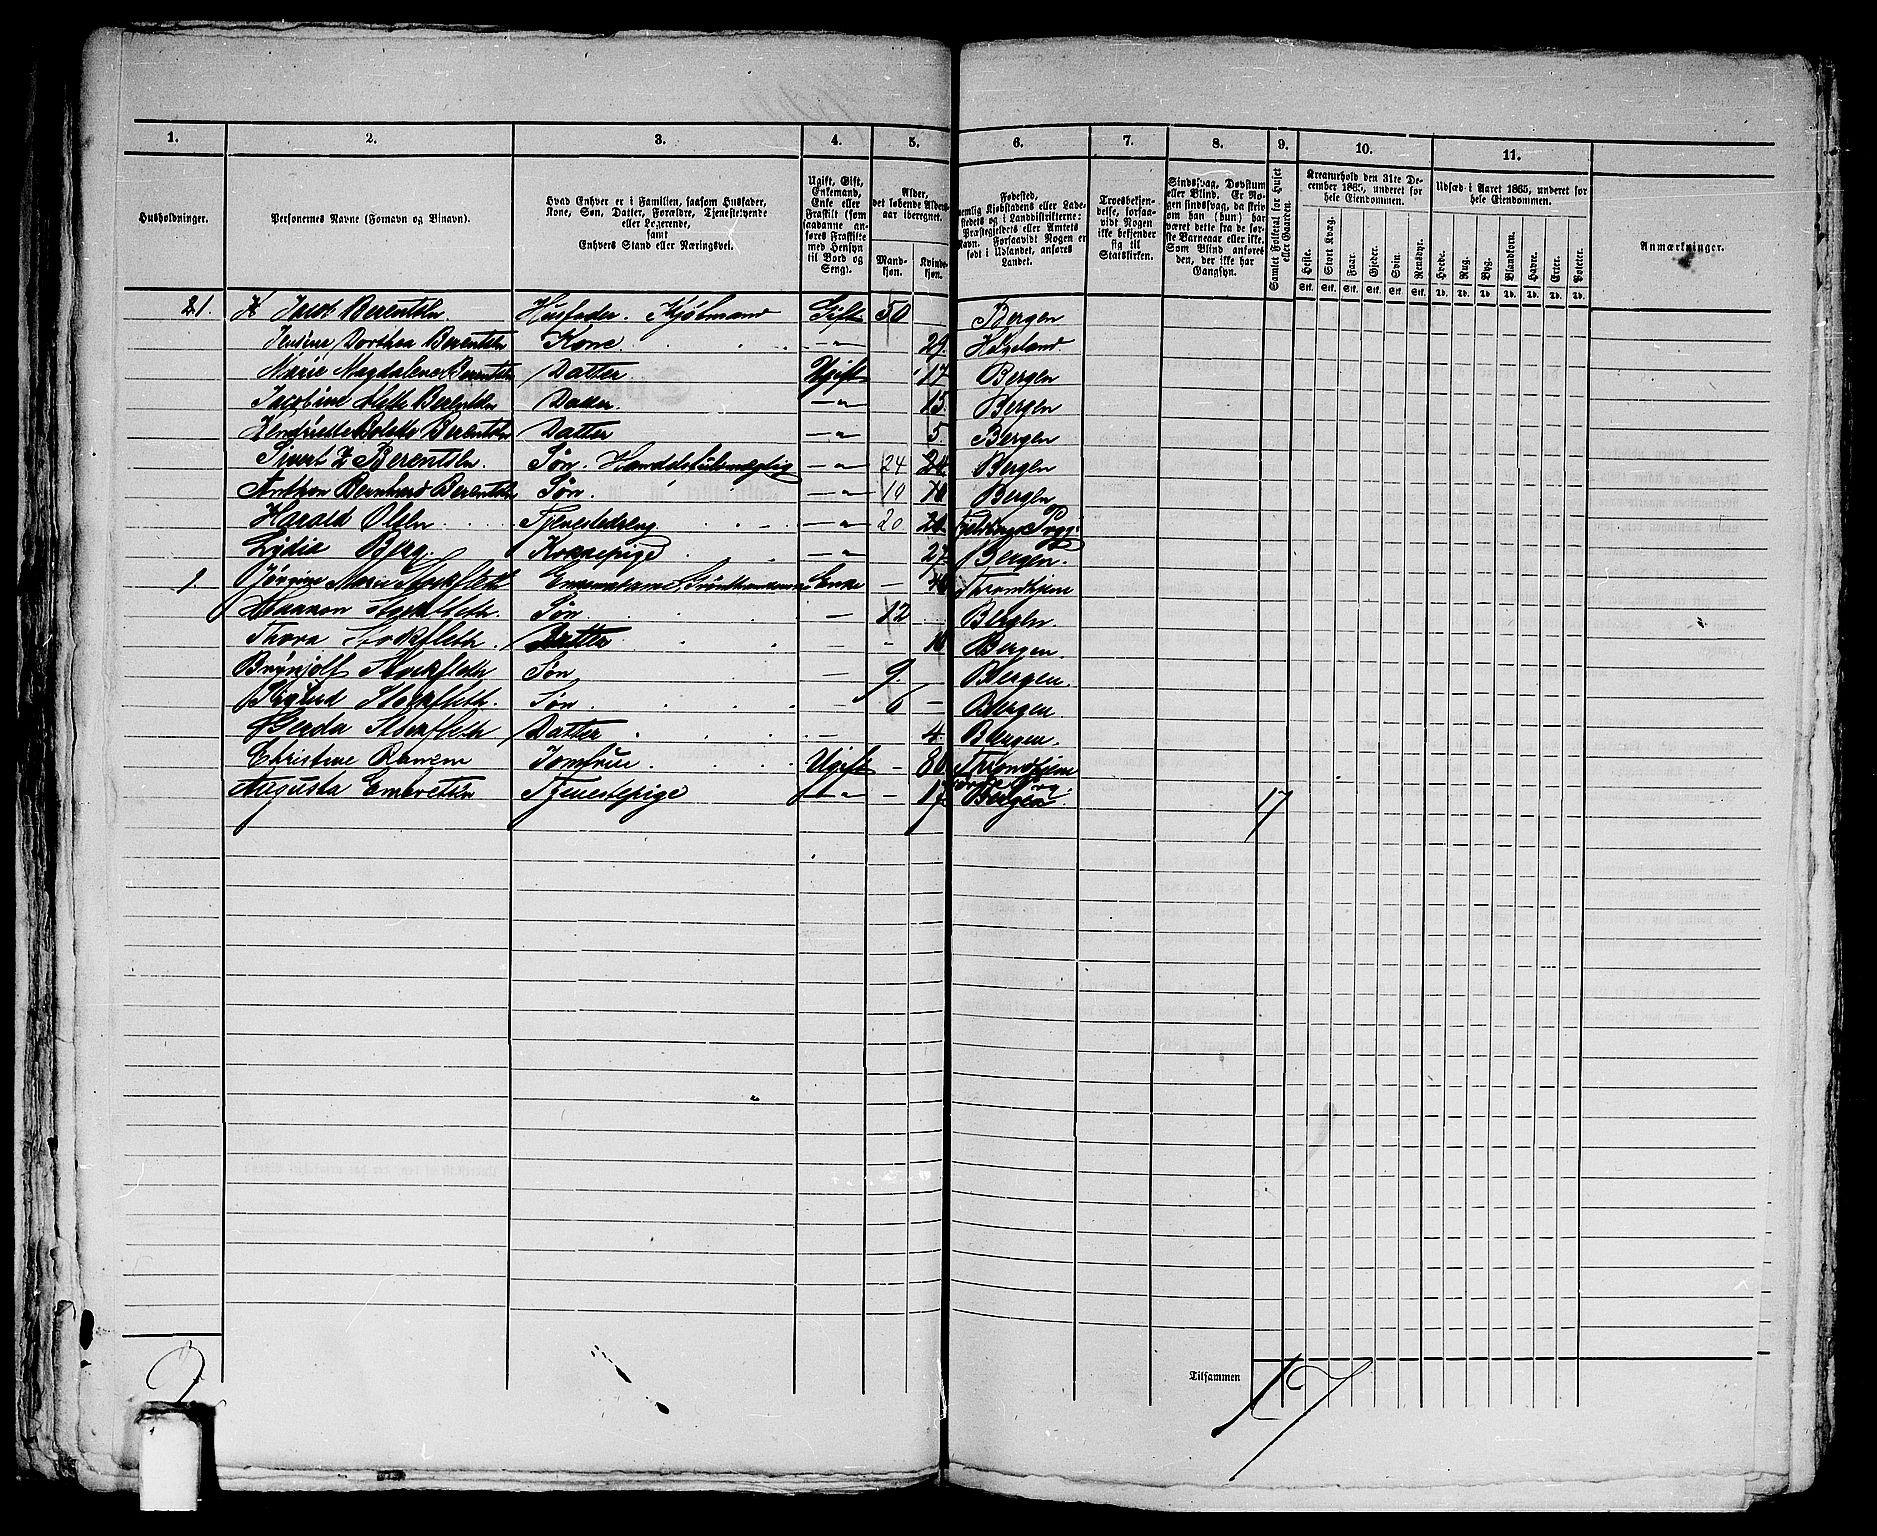 1. 2. 3. 4. 5. 6. 7. 8. 9. 10. 11.
Husholdninger.
Personernes Navne (Fornavn og Binavn).
Hvad Enhver er i Familien, saasom Husfader, Kone, Søn, Datter, Forældre, Tjenestetyende eller Logerende, samt Enhvers Stand eller Næringsvei.
Ugift, Gift, Enkemand, Enke eller Fraskilt (som saadanne anføres Fraskilte med Hensyn til Bord og Seng).
Alder, det løbende Alders-aar iberegnet.
Mand-kjøn. Kvinde-kjøn.
Fødested, nemlig Kjøbstadens eller Ladestedets og i Landdistrikterne: Præstegjeldets eller Amtets Navn. Forsaavidt Nogen er født i Udlandet, anføres Landet.
Troesbekjendelse, forsaavidt Nogen ikke bekjender sig til Statskirken.
Sindssvag, Døvstum eller Blind. Er Nogen sindssvag, da skrives om han (hun) har været dette fra de første Barneaar eller ikke. Som Blind anføres den, der ikke har Gangsyn.
Samlet Folketal for Huset eller Gaarden.
Kreaturhold den 31te December 1865, underet for hele Eiendommen.
Heste. Stort Kvæg. Faar. Gjeder. Svin. Rensdyr.
Stk. Stk. Stk. Stk. Stk. Stk.
Udsæd i Aaret 1865, underet for hele Eiendommen.
Hvede. Rug. Byg. Blandkorn. Havre. Erter. Poteter.
Td. Td. Td. Td. Td. Td. Td.
Anmærkninger.
21. Jacob Berentsen. Husfader. Kjøbmand Gift 50 Bergen
Dorthea Berentsen Kone. — „ — 29.
Marie Magdalene Berentsen Datter Ugift 17 Bergen
Jacobine Berentsen Datter. — „ 15. Bergen
Berentsen Datter — „ 5. Bergen
Sivert Z Berentsen. Søn. — „ — 24 Bergen
Anthon Bernhard Berentsen Søn. — „ — 10 Bergen
Harald Olsen Tjenestedreng — „ 20.
Lydia Berg. Kokkepige — „ 27. Bergen.
1 Jørgine Marie Stockfleth Enke — 40 Throndhjem
Haakon Stockfleth. Søn — 12 Bergen.
Thora Stockfleth. Datter — 10 Bergen.
Brynjolf Stockfleth Søn — 9. Bergen.
Sigurd Stockfleth. Søn. — 6 — Bergen.
Gerda Stockfleth Datter — 4. Bergen.
Christine Jomfrue. Ugift — 80 Throndhjem
Augusta Tjenestepige — „ — 17 Bergen. 17
2
Tilsammen 17